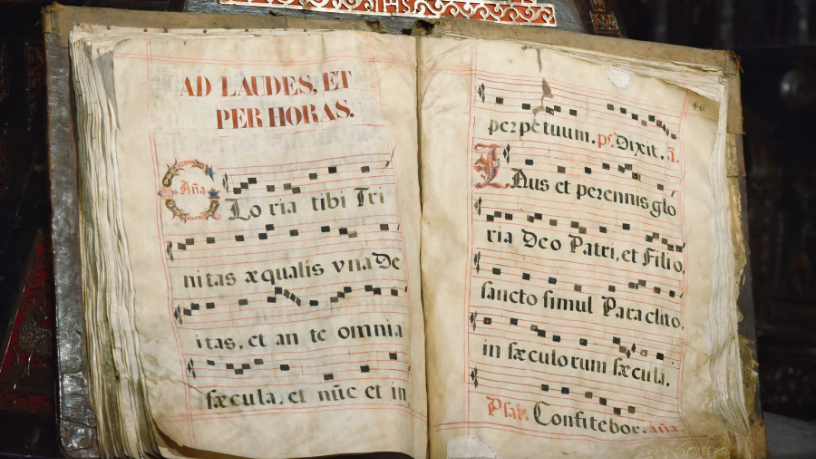 IHS
AD LAUDES, ET
PER HORAS.
Aña
Glo ria tibi Tri
nitas æqualis vna De
itas, et an te omnia
sæcula, et nũc et in
46
perpetuum. ps. Dixit. ã.
Laus et perennis glo
ria Deo Patri, et Filio,
sancto simul Paraclito,
in sæculorum sæcula.
Psal. Confitebor. aña.